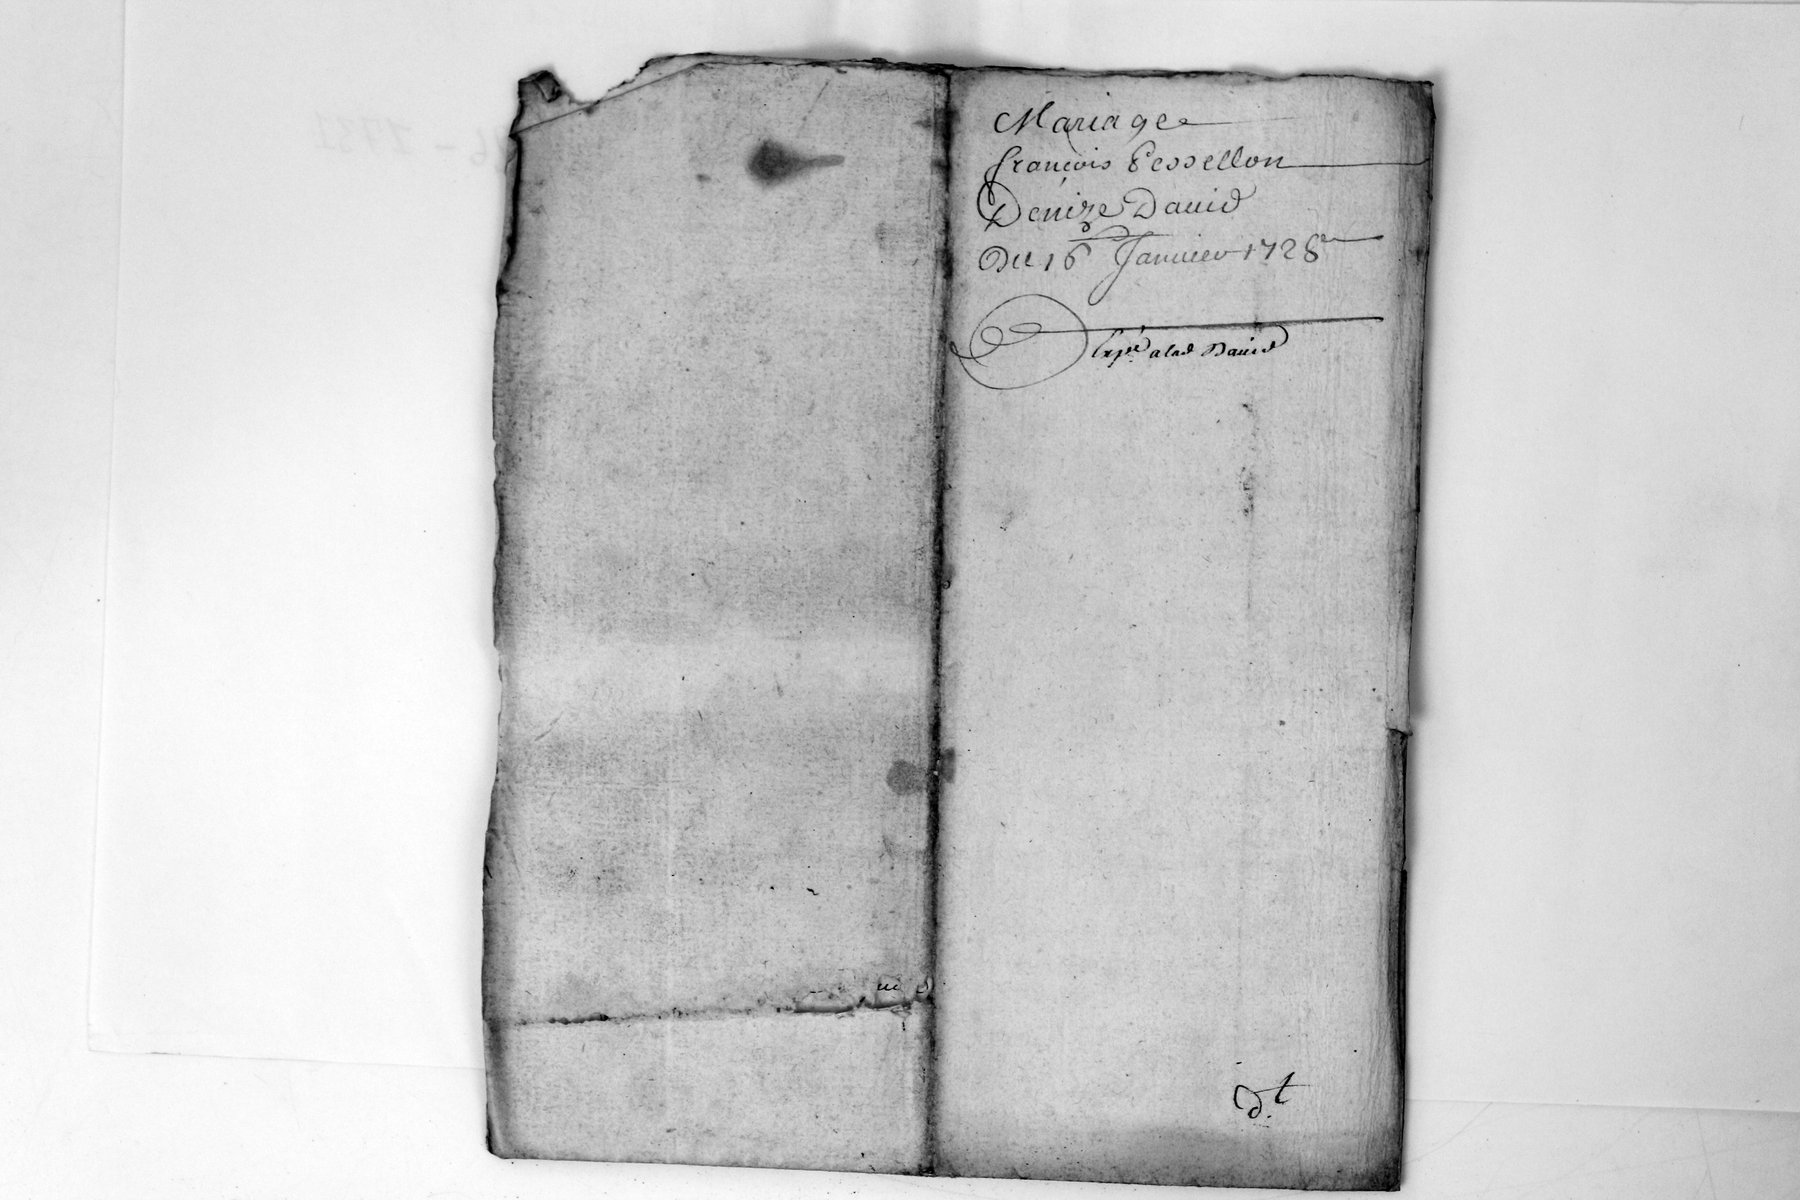 Mariage
françois Pessellon
Denize Dauid
Du 16 Januier 1728
Exp.é a lad Dauid